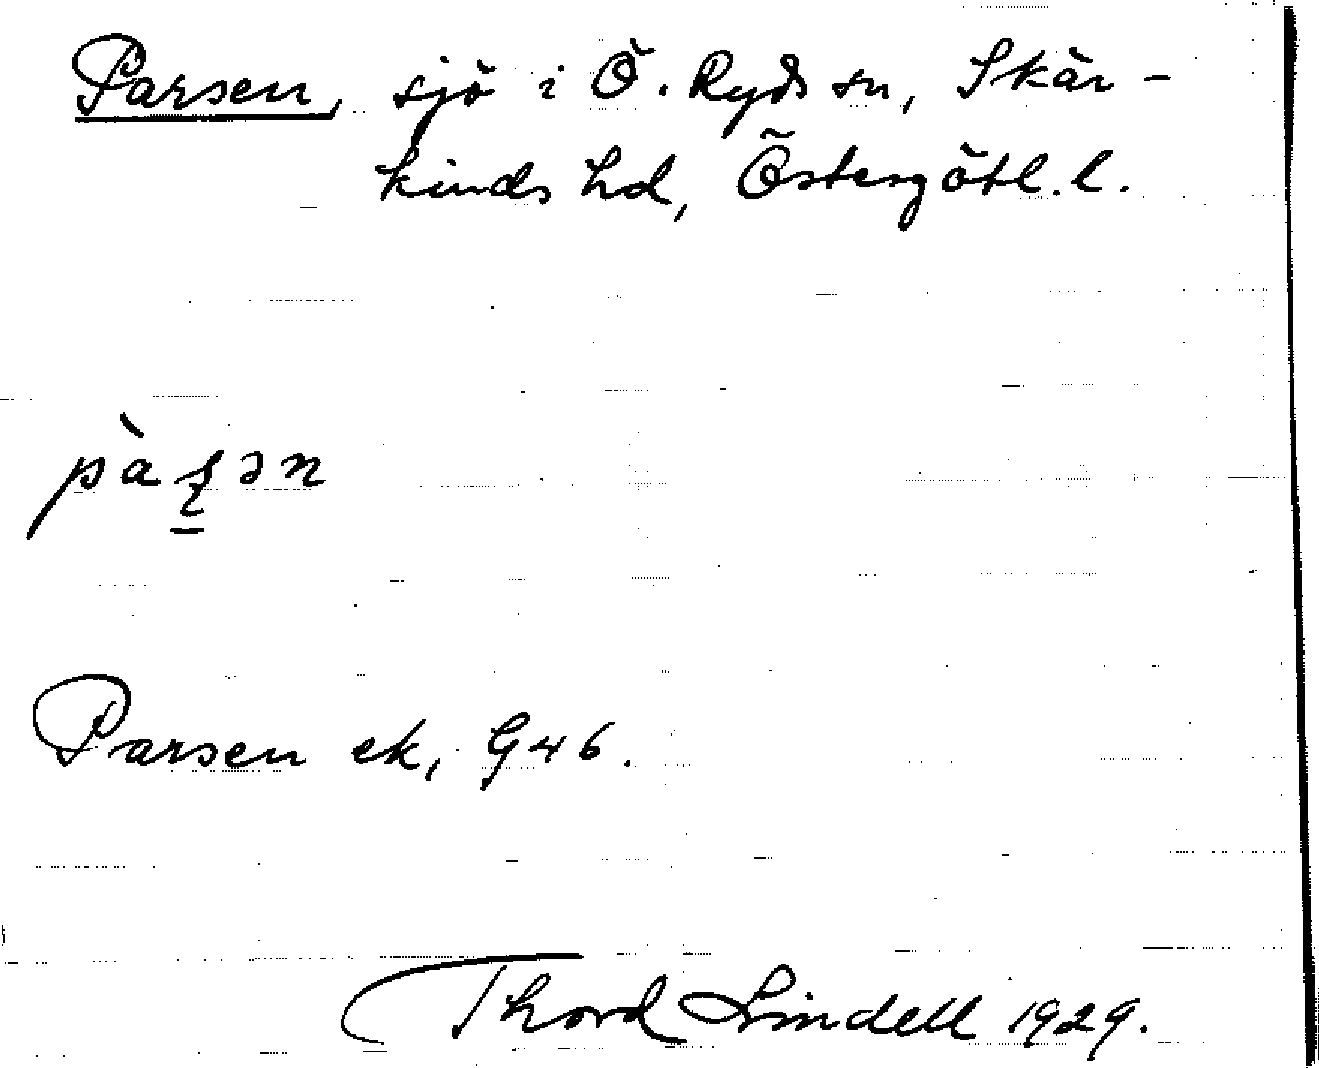 Parsen, sjö i Ö. Ryds sn, Skär-
kinds hd, Östergötl. l.
Parsen ek, G46.
Thord Lindell 1929.